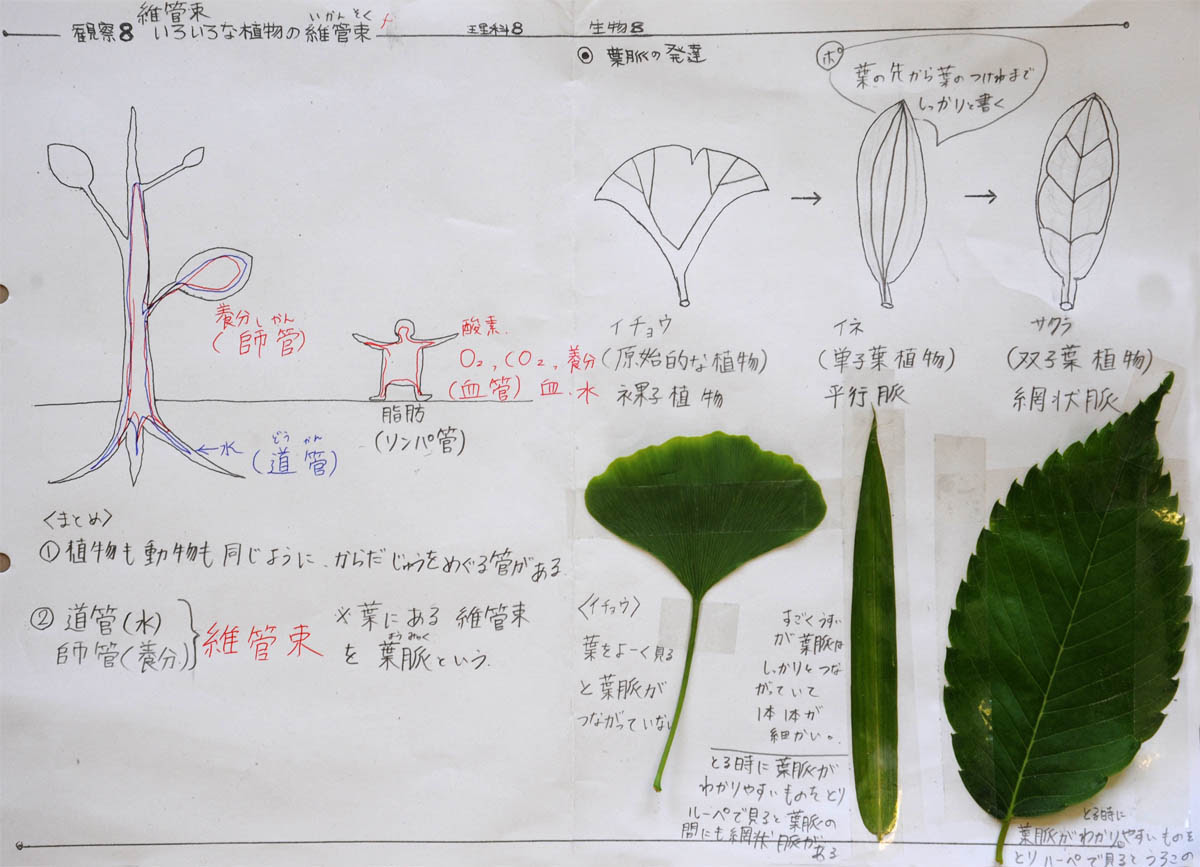 維管束
観察8 いろいろな植物の維管束
いかんそく
理科8
生物8
養分 しかん
(師管)
酸素
O2, CO2, 養分
(血管) 血、水
脂肪
(リンパ管)
←水
どうかん
(道管)
<まとめ>
①植物も動物も同じように、からだじゅうをめぐる管がある。
②道管(水)
師管(養分)
維管束
※葉にある維管束
ようみゃく
を葉脈という。
◉葉脈の発達
ポ
葉の先から葉のつけねまで
しっかりと書く
→
→
イチョウ
(原始的な植物)
裸子植物
イネ
(単子葉植物)
平行脈
サクラ
(双子葉植物)
網状脈
<イチョウ>
葉をよーく見る
と葉脈が
つながっていない
すごくうすい
が葉脈は
しっかりとつな
がっていて
1本1本が
細かい。
とる時に葉脈が
わかりやすいものをとり
ルーペで見ると葉脈の
間にも網状脈がある
とる時に
葉脈がわかりやすいものを
とりルーペで見ると